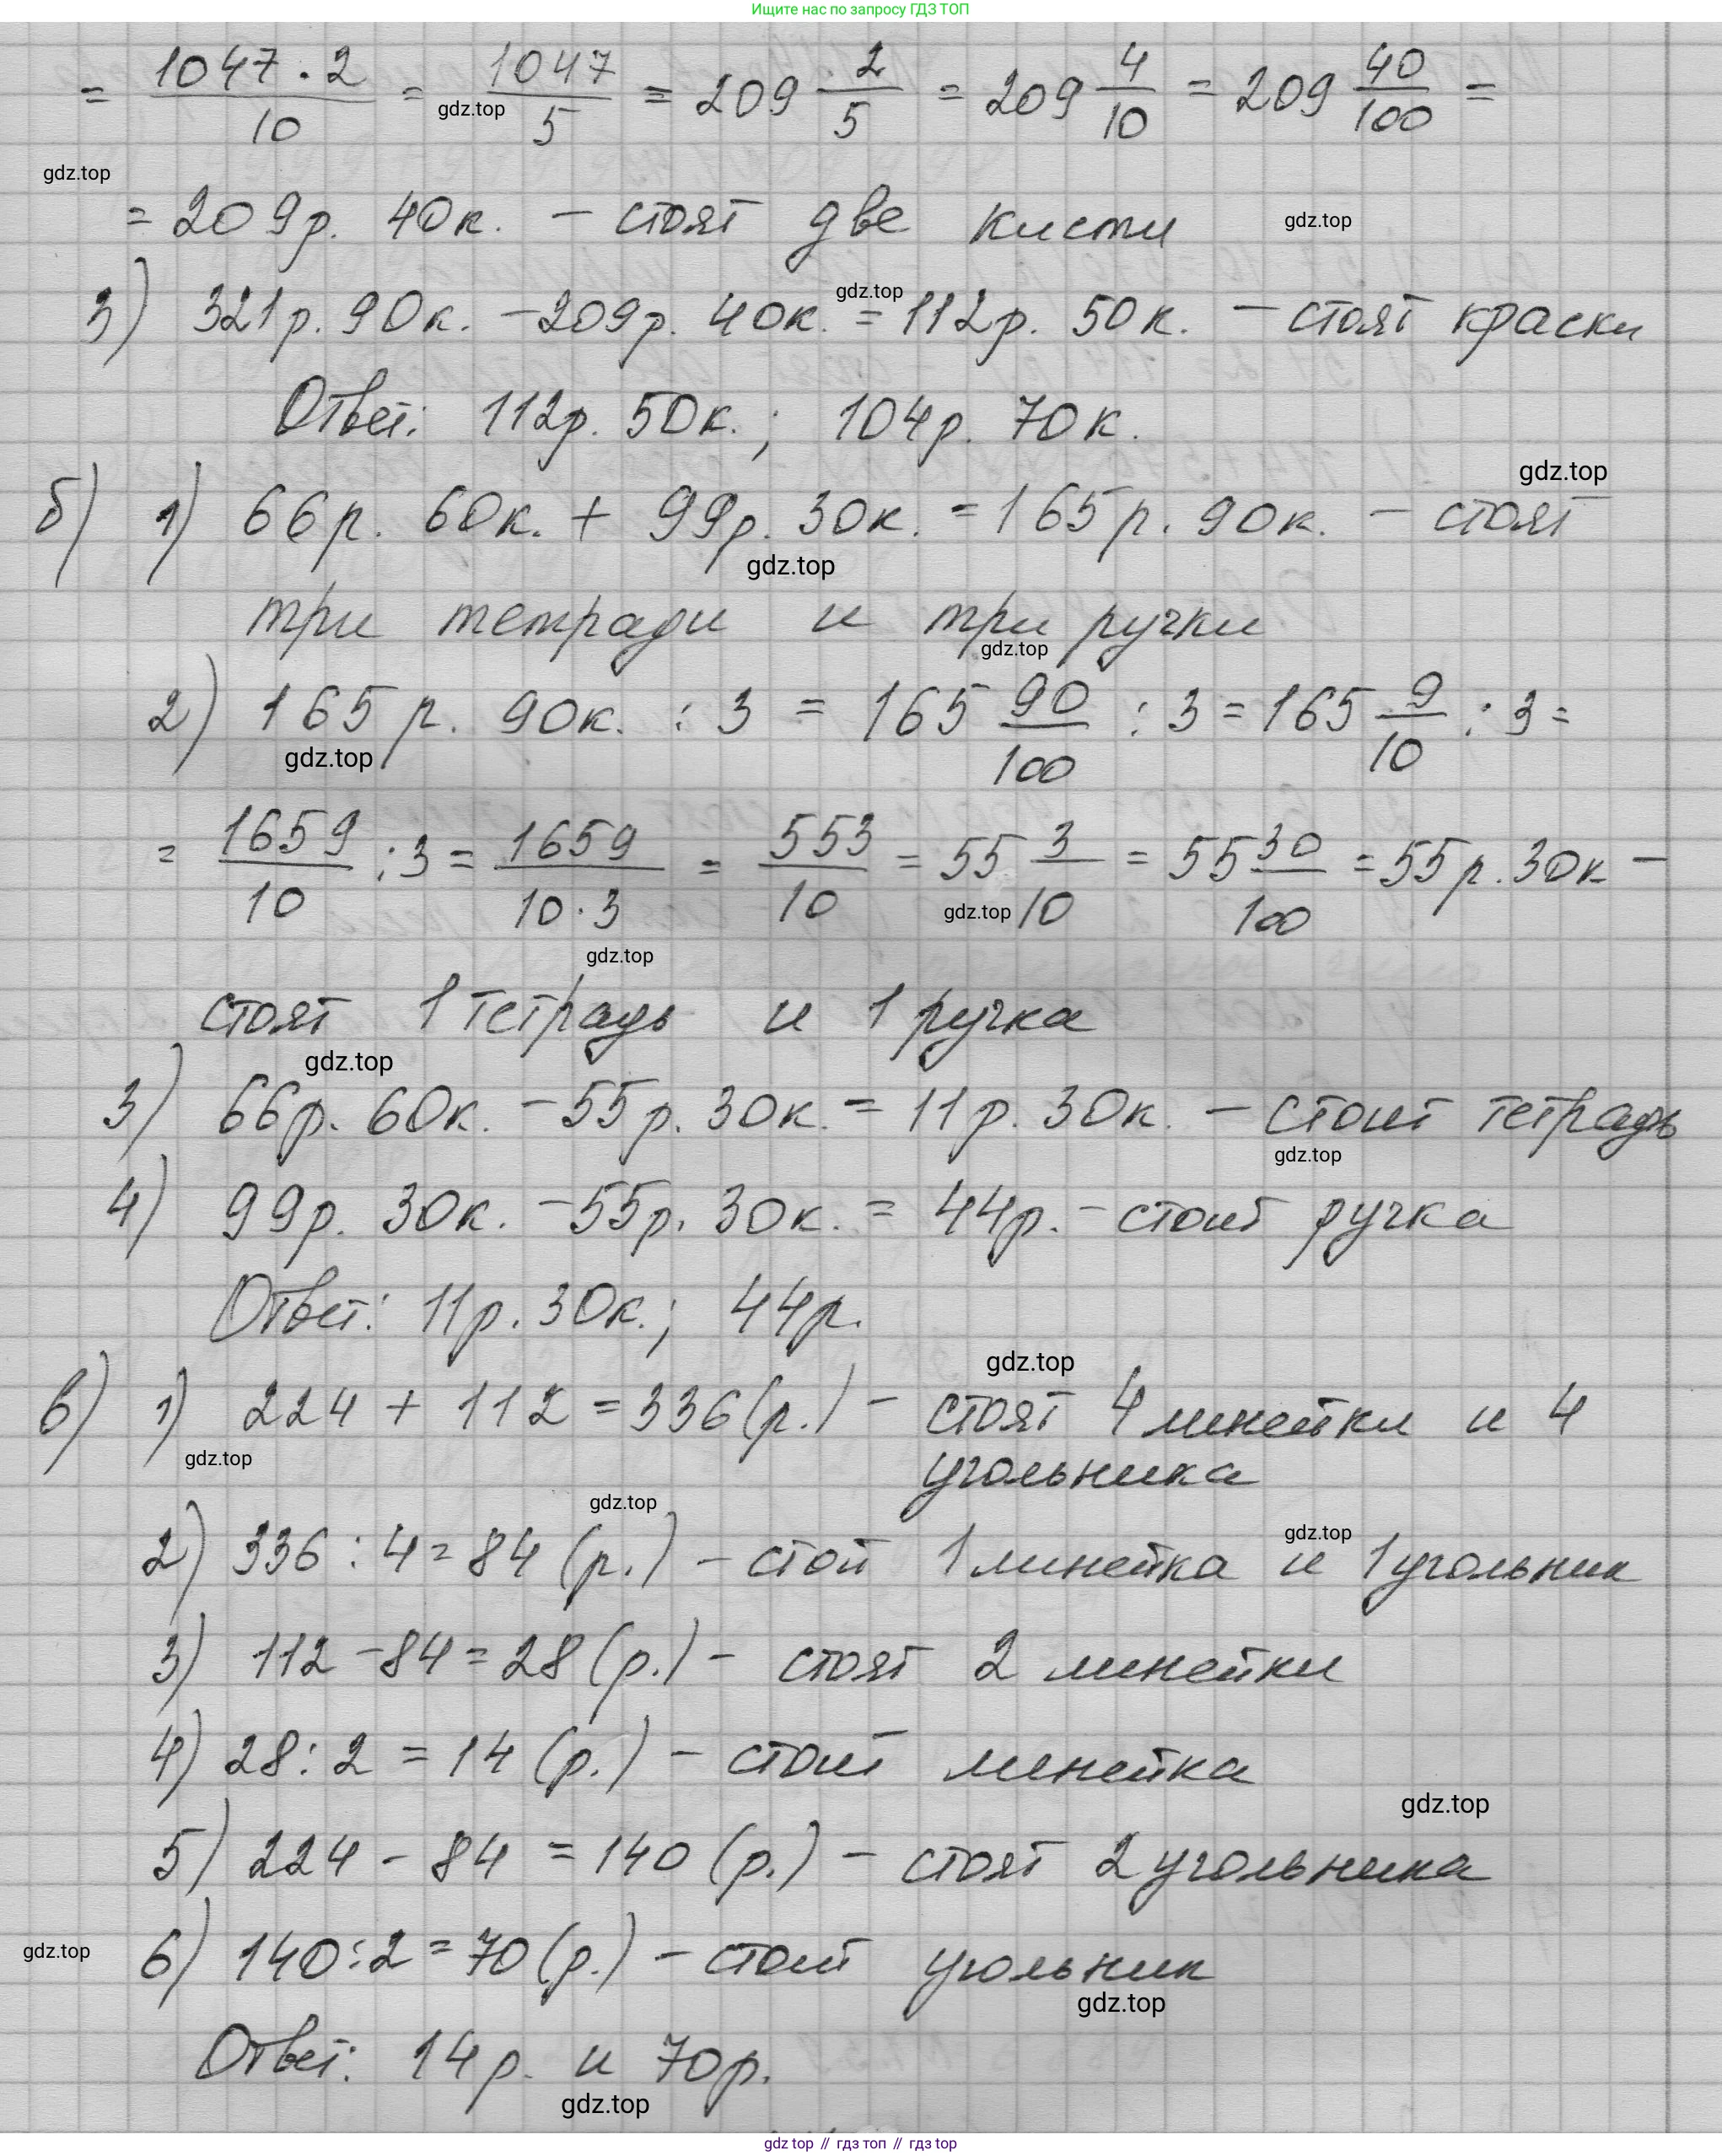 Ищите нас по запросу ГДЗ ТОП
= 1047 · 2 / 10 = 1047 / 5 = 209 2/5 = 209 4/10 = 209 40/100 =
gdz.top
gdz.top
= 209р. 40к. – стоят две кисти gdz.top
3) 321р. 90к. – 209р. 40к. = 112р. 50к. – стоят краски
gdz.top
Ответ: 112р. 50к.; 104р. 70к.
gdz.top
б) 1) 66р. 60к. + 99р. 30к. = 165р. 90к. – стоят
gdz.top
три тетради и три ручки
gdz.top
2) 165р. 90к. : 3 = 165 90/100 : 3 = 165 9/10 : 3 =
gdz.top
= 1659/10 : 3 = 1659 / 10 · 3 = 553/10 = 55 3/10 = 55 30/100 = 55р. 30к –
gdz.top
gdz.top
стоят 1 тетрадь и 1 ручка
gdz.top
3) 66р. 60к. – 55р. 30к. = 11р. 30к. – стоит тетрадь
gdz.top
4) 99р. 30к. – 55р. 30к. = 44р. – стоит ручка
Ответ: 11р. 30к.; 44р.
gdz.top
в) 1) 224 + 112 = 336 (р.) – стоят 4 линейки и 4
gdz.top
угольника
gdz.top
gdz.top
2) 336 : 4 = 84 (р.) – стои 1 линейка и 1 угольник
3) 112 – 84 = 28 (р.) – стоят 2 линейки
4) 28 : 2 = 14 (р.) – стоит линейка
gdz.top
5) 224 – 84 = 140 (р.) – стоят 2 угольника
gdz.top
6) 140 : 2 = 70 (р.) – стоит угольник
gdz.top
Ответ: 14р. и 70р.
gdz.top
gdz top // гдз топ // gdz top